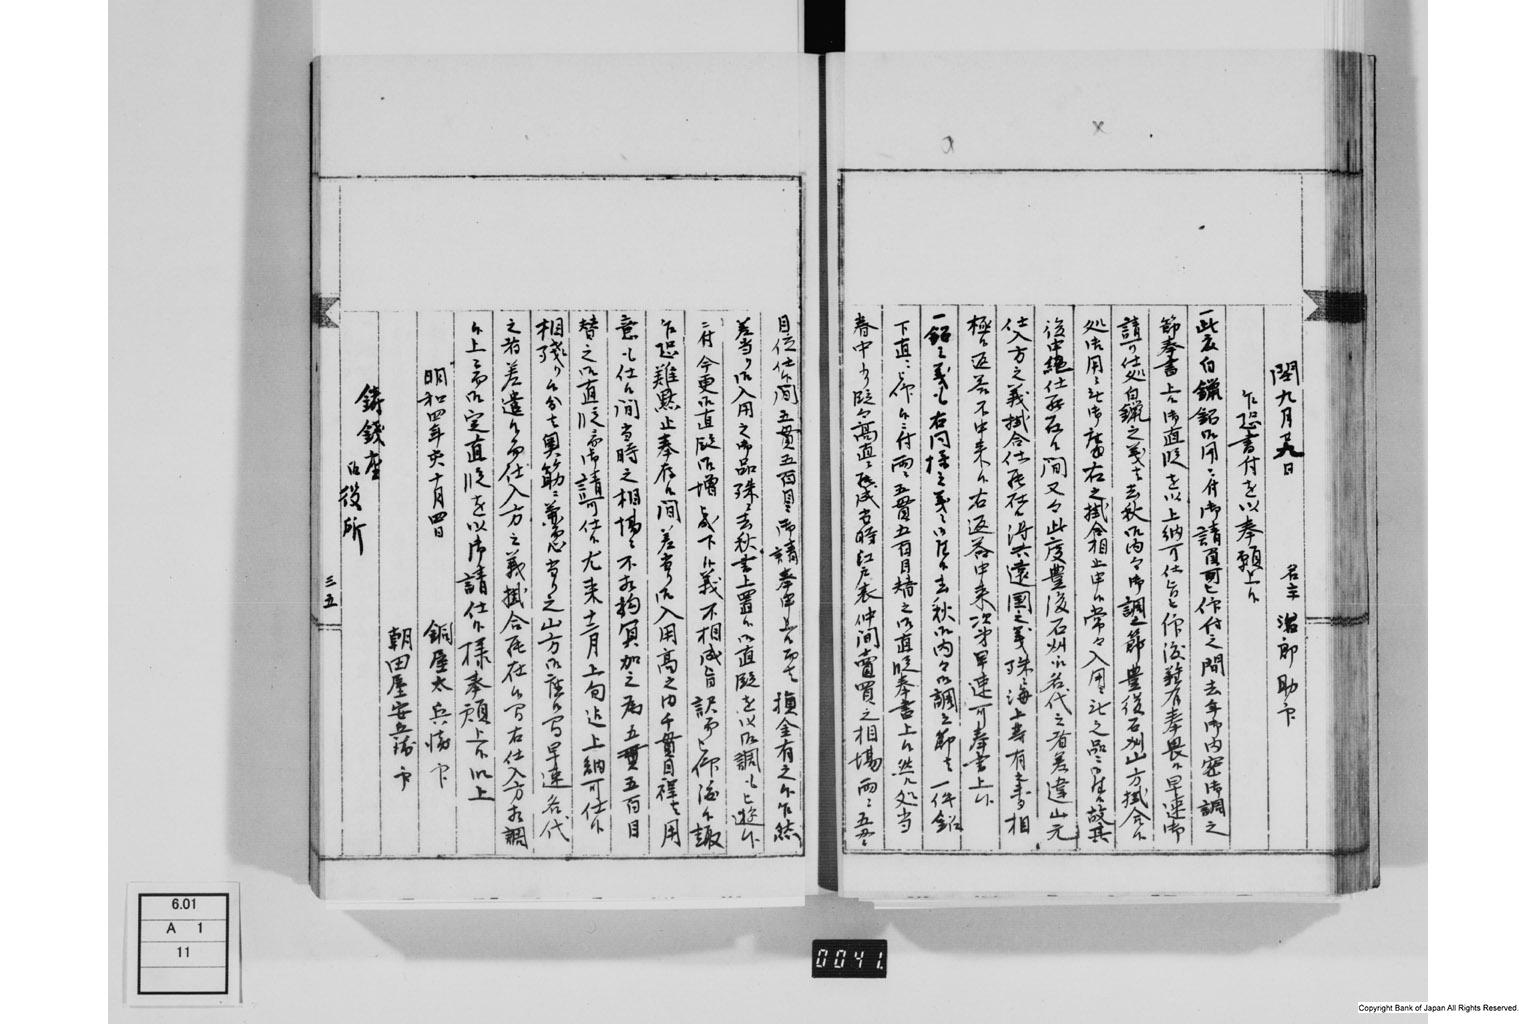 閏九月廿九日
名主 治郎助 印
乍恐書付を以奉願上候
一此度白鑞鉛御用ニ付御請負可仕付之間去年御内密御調之
節奉書上候御直段を以上納可仕旨被仰渡難有奉畏候早速御
請可仕処白鑞之義ハ去秋御内々御調之節豊後石州山方掛合候
処御用ニ無御座右之掛合相止申候常々入用ニ無之品ニ御座候故其
後中絶仕罷在候間又々此度豊後石州江名代之者差遣山元
仕入方之義掛合仕罷在候得共遠国之義殊ニ海上等有之相
極候返答不申来候右返答申来次第早速可奉書上候
一鉛之義も右同様之義ニ御座候去秋御内々御調之節ハ一件鉛
下直ニ御座候ニ付両ニ五貫五百目替之御直段奉書上候然ル処当
春中より段々高直ニ罷成当時江戸表仲間売買之相場両ニ五貫
目位仕候間五貫五百目ニ御請奉申上候而ハ損金有之候乍然
差当り御入用之御品殊ニ去秋書上置候御直段を以御調も被遊候
ニ付今更御直段御増被成下候義不相成旨訳而被仰渡候趣
乍恐難黙止奉存候間差当り御入用高之内千貫目程ハ用
意も仕候間当時之相場ニ不相拘冥加之為五貫五百目
替之御直段ニ而御請可仕候尤来十二月上旬迄上納可仕候
相残り候分ハ奥筋ニ
之者差遣候而仕入方之義掛合罷在候間右仕入方相調
候上ニ而御定直段を以御請仕候様奉願上候以上
明和四年亥十月四日
銅屋太兵衛 印
朝田屋安兵衛 印
鋳銭座
御役所
三五
6.01
A 1
11
0041.
Copyright Bank of Japan All Rights Reserved.